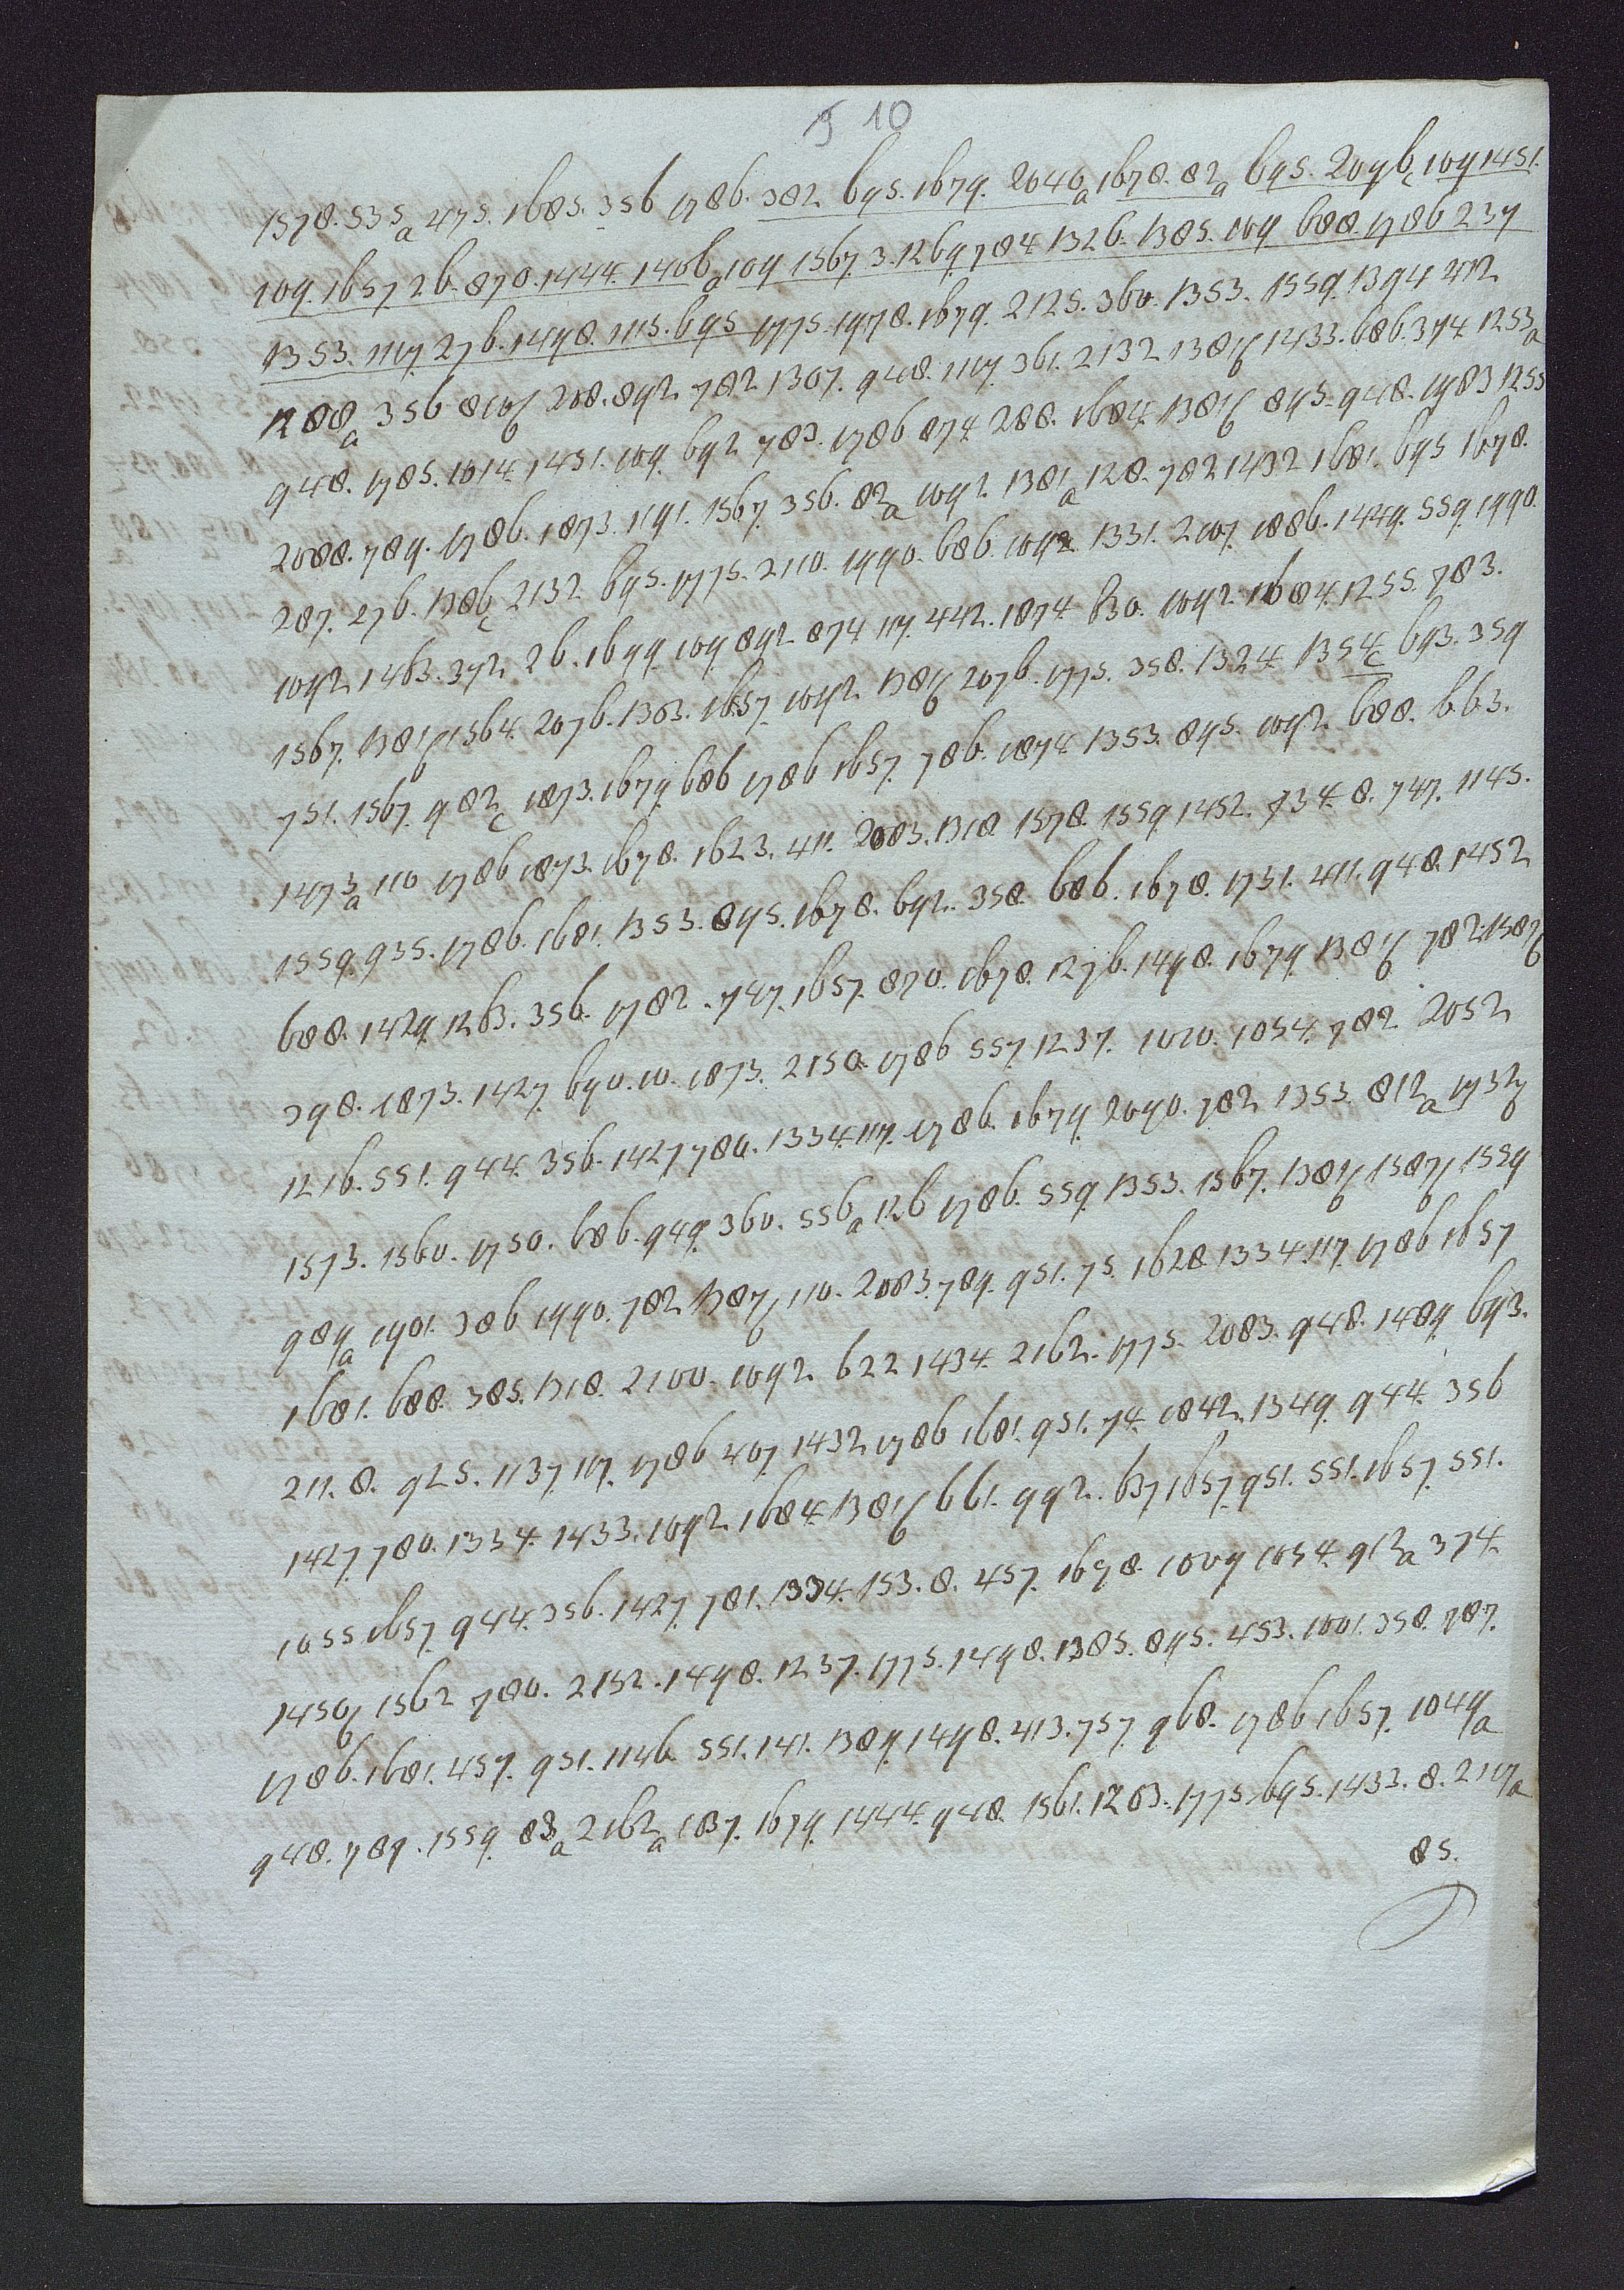 5 10
1578. 535a 475. 1685. 356 1786. 382 695. 1679. 2046a 1678. 82a 695. 2096c 109 1451.
109. 1657. 26. 870. 1444. 1406a 109 1567. 3. 1269. 784 1326. 1385. 109 688. 1786 237
1353. 1117. 276. 1498. 1115. 695 1775. 1978. 1679. 2125. 360. 1353. 1559. 1394 412
1288a 356 810b 208. 892. 782 1307. 948. 1117. 361. 2132 1381b 1433. 686. 374 1253a
948. 1785. 1014. 1451. 109. 692 783. 1786 874 288. 1684. 1381b 895. 948. 1983 1255
2088. 789. 1786. 1873. 1191. 1567. 356. 82a 1092. 1381a 128. 782 1432 1681. 695 1678.
287. 276. 1386c 2132 695. 1775. 2110. 1990. 686. 1092 1331. 2107. 1886. 1449. 559. 1990.
1092 1463. 372. 26. 1699. 109 892. 874 117. 442. 1874. 630. 1092. 1684. 1255. 783.
1567. 1381b 1564. 2076. 1303. 1657. 1092. 1381b 2076. 1775. 358. 1324. 1354c 693. 359
751. 1567. 982c 1873. 1679. 686 1786 1657. 786. 1874. 1353. 895. 1092. 688. 663.
1473a 110 1786 1873. 1678. 1623. 411. 2083. 1318. 1578. 1559. 1452. 734. 8. 747. 1145.
1559. 935. 1786. 1681. 1353. 895. 1678. 692. 358. 686. 1678. 1731. 411. 948. 1452
688. 1429. 1263. 356. 1782. 747. 1657. 870. 1678. 1276. 1498. 1679. 1381b 782. 1587b
398. 1873. 1427. 690. 10. 1873. 2150. 1786 557. 1237. 1010. 1054. 782. 2052
1216. 551. 944. 356. 1427. 780. 1334. 117. 1786. 1679. 2090. 782. 1353. 812a 1732b
1573. 1560. 1750. 686. 949. 360. 556a 126 1786. 559. 1353. 1567. 1381b 1587b 1559
989a 1901. 386 1990. 782 1387b 110. 2083. 789. 951. 75. 1628. 1334. 117. 1786 1657
1681. 688. 385. 1318. 2100. 1092. 622 1434. 2162. 1775. 2083. 948. 1489. 693.
211. 8. 925. 1137. 117. 1786 407. 1432 1786 1681. 951. 74. 1842. 1349. 944. 356
1427. 780. 1334. 1433. 1092 1684. 1381b 661. 992. 637. 1657. 951. 551. 1657. 551.
1055 1657. 944. 356. 1427. 781. 1334. 153. 8. 457. 1678. 1009 1054. 912a 374.
1450b 1562 780. 2152. 1498. 1237. 1775. 1498. 1385. 895. 453. 1001. 358. 787.
1786. 1681. 457. 951. 1146. 551. 141. 1389. 1498. 413. 757. 968. 1786 1657. 1049a
948. 789. 1559. 83a 2162a 1837. 1679. 1444. 948. 1561. 1263. 1775. 695. 1433. 8. 2107a
85.